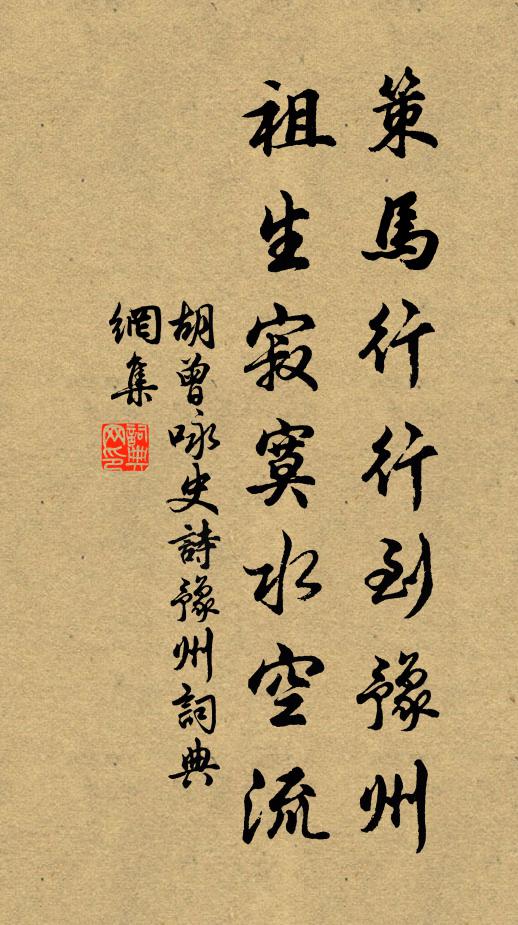 策馬行行到豫州
祖生寂寞水空流
胡曾咏史詩豫州詞典
網集
詞典
网印